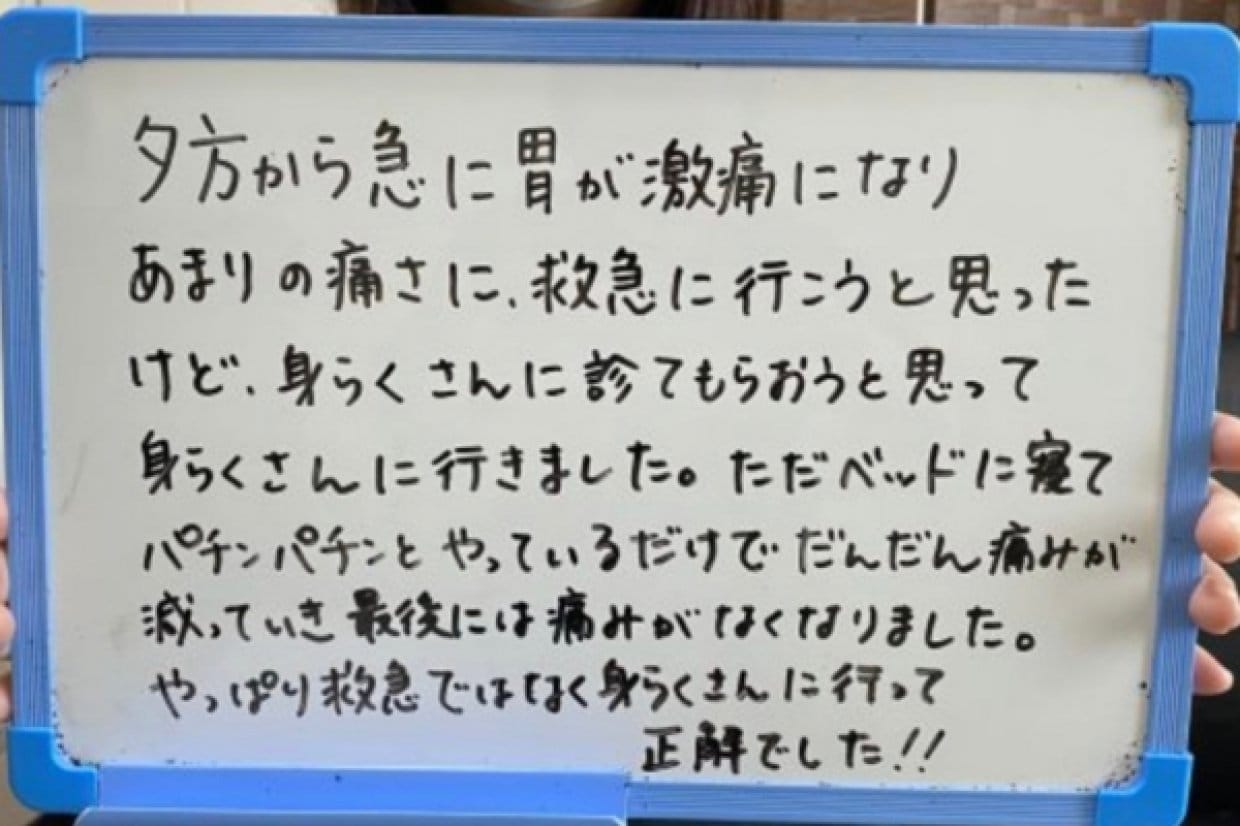 夕方から急に胃が激痛になり
あまりの痛さに、救急に行こうと思った
けど、身らくさんに診てもらおうと思って
身らくさんに行きました。ただベッドに寝て
パチンパチンとやっているだけでだんだん痛みが
減っていき最後には痛みがなくなりました。
やっぱり救急ではなく身らくさんに行って
正解でした!!